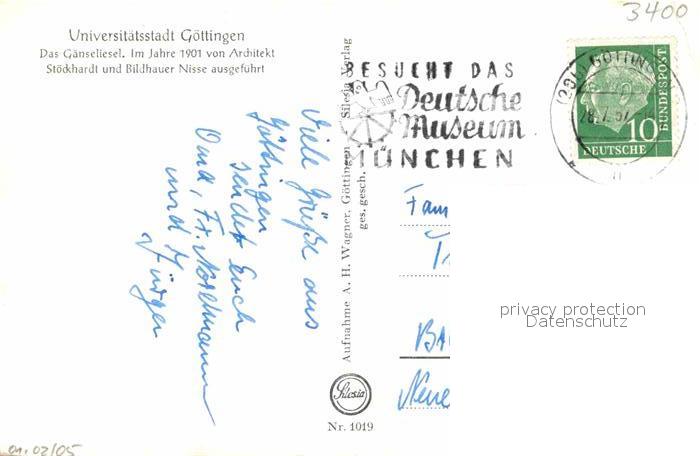 3400
Universitätsstadt Göttingen
Das Gänseliesel. Im Jahre 1901 von Architekt
Stöckhardt und Bildhauer Nisse ausgeführt
BESUCHT DAS
Deutsche
Museum
MÜNCHEN
GÖTTINGEN
10
DEUTSCHE
BUNDESPOST
Viele Grüße aus
Göttingen
sendet Euch
Oma, Fr.
und Jürgen
Aufnahme A. H. Wagner, Göttingen Silesia Verlag
ges. gesch.
Fam
privacy protection
Datenschutz
Silesia
Nr. 1019
01.02/05